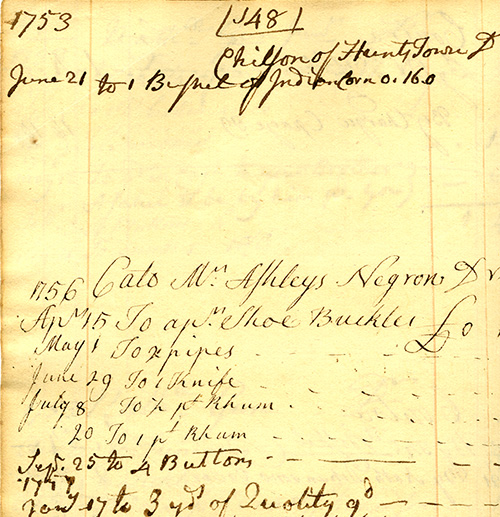 1753 148
Chilson of Hunts Town D
June 21 to 1 Bushel of Indian Corn 0.16.0
1756 Cato Mr. Ashleys Negron Dr
Apr 15 To a pr. Shoe Buckles £0
May 1 To 2 pipes
June 29 To 1 Knife
July 8 To ½ pt Rhum
20 To 1 pt Rhum
Sep. 25 to 4 Buttons
1757
Jany 17 to 3 yds of Quality 9d